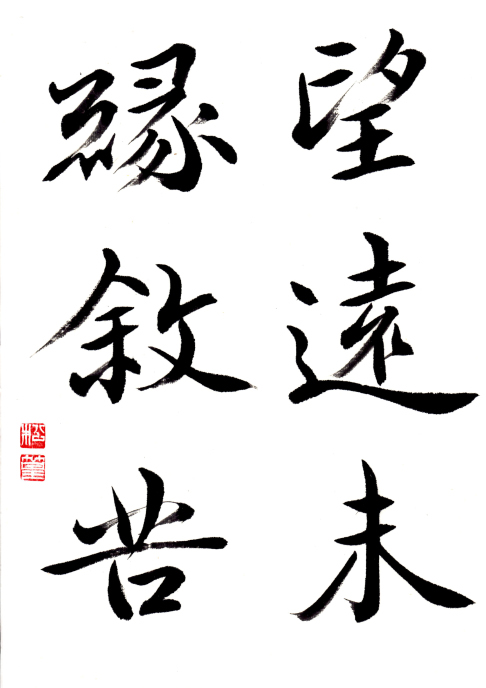 望遠未
縁敘苦